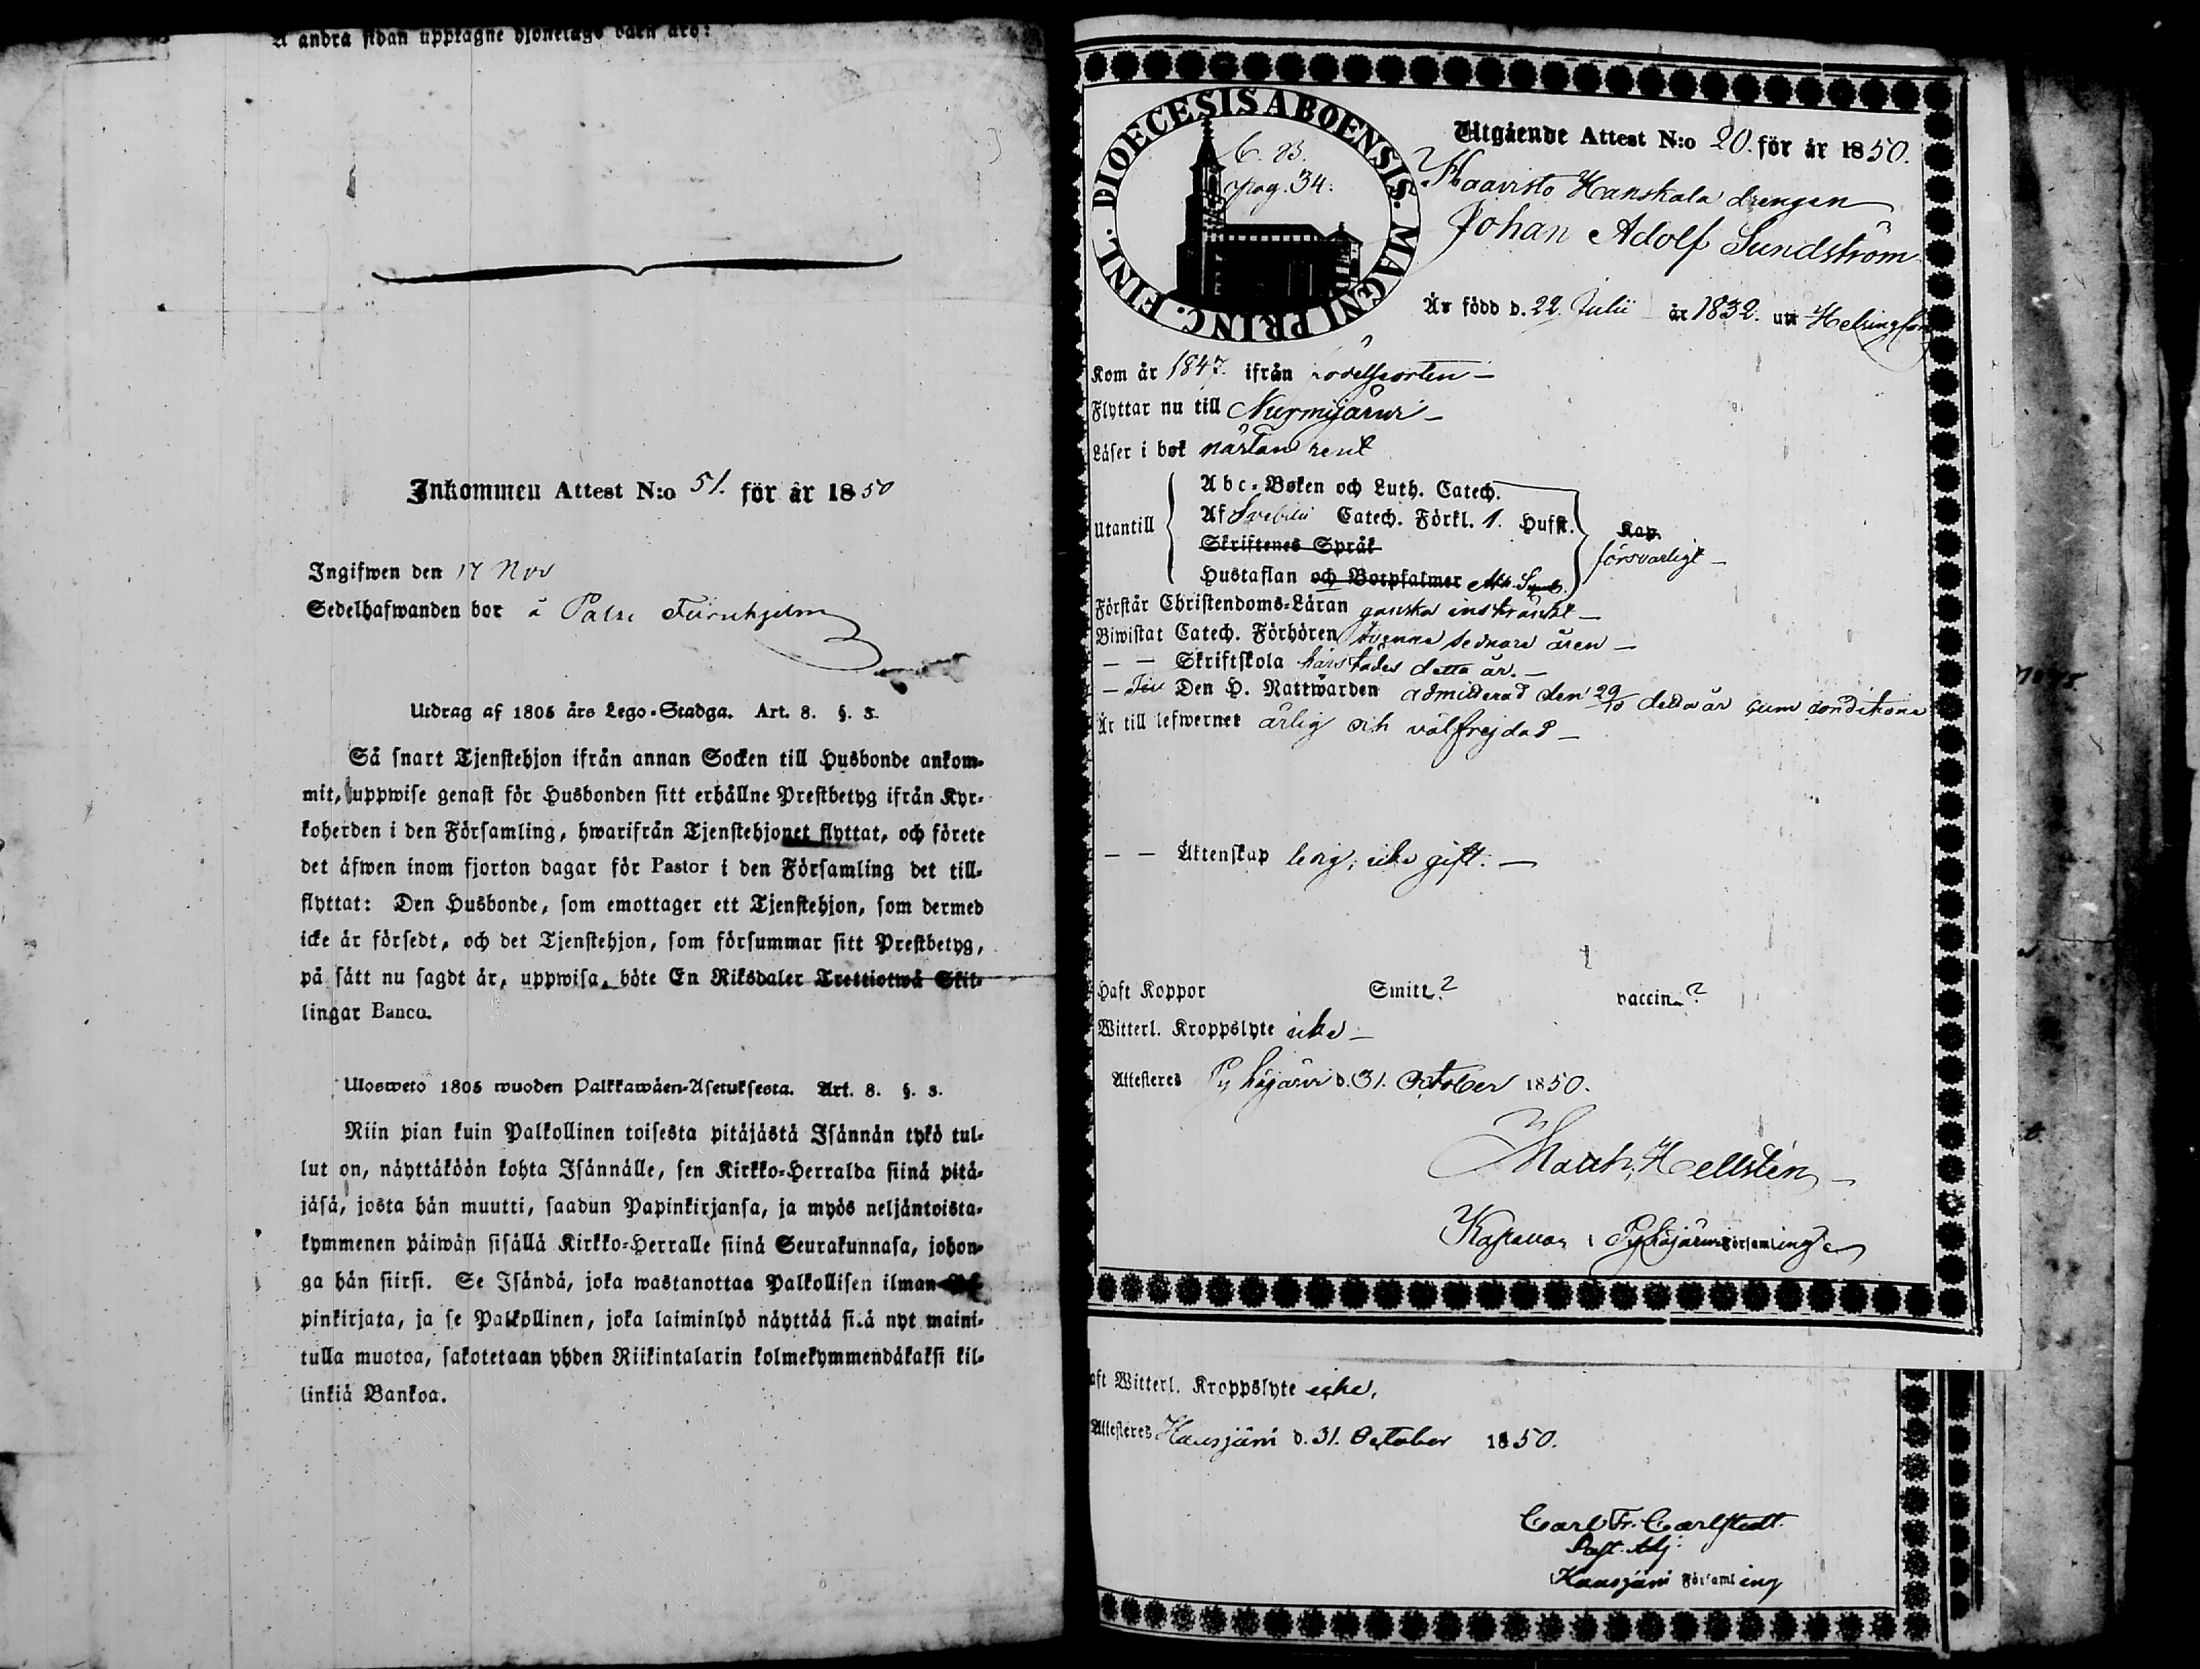 Å andra sidan upptagne hjonelags barn äro:
Inkommen Attest N:o 51. för år 1850
Ingifwen den 17 Nov
Sedelhafwanden bor å
Utdrag af 1805 års Lego-Stadga. Art. 8. §. 3.
Så snart Tjenstehjon ifrån annan Socken till Husbonde ankom-
mit, uppwise genast för Husbonden sitt erhållne Prestbetyg ifrån Kyr-
koherden i den Församling, hwarifrån Tjenstehjonet flyttat, och förete
det äfwen inom fjorton dagar för Pastor i den Församling det till-
flyttat: Den Husbonde, som emottager ett Tjenstehjon, som dermed
icke är försedt, och det Tjenstehjon, som försummar sitt Prestbetyg,
på sätt nu sagdt är, uppwisa, böte En Riksdaler Trettiotwå Skil-
lingar Banco.
Ulosweto 1805 wuoden Palkkawäen-Asetuksesta. Art. 8. §. 3.
Niin pian kuin Palkollinen toisesta pitäjästä Isännän tykö tul-
lut on, näyttäköön kohta Isännälle, sen Kirkko-Herralda siinä pitä-
jäsä, josta hän muutti, saadun Papinkirjansa, ja myös neljäntoista-
kymmenen päiwän sisällä Kirkko-Herralle siinä Seurakunnasa, johon-
ga hän siirsi. Se Isändä, joka wastanottaa Palkollisen ilman Pa-
pinkirjata, ja se Palkollinen, joka laiminlyö näyttää sitä nyt maini-
tulla muotoa, sakotetaan yhden Riikintalarin kolmekymmendäkaksi kil-
linkiä Bankoa.
DIOECESIS ABOENSIS. MAGNI PRINC. FINL.
pag. 34.
Utgående Attest N:o 20. för år 1850.
Haavisto Hanskala drengen
Johan Adolf Sundström
Är född d. 22. Julii år 1832. uti Helsingfors
Kom år 1847. ifrån födelseorten —
Flyttar nu till Nurmijärwi —
Läser i bok nästan rent
Utantill
Abc-Boken och Luth. Catech.
Af Svebilii Catech. Förkl. 1. Hufst. Kap.
Skriftenes Språk
försvarligt —
Hustaflan och Botpsalmer Ath. Symb.
Förstår Christendoms-Läran ganska inskränkt —
Biwistat Catech. Förhören tvenne sednare åren —
— — Skriftskola härstädes detta år. —
— Till Den H. Nattwarden admitterad den 29/10 detta år cum conditione
Är till lefwernet ärlig och välfrejdad —
— — Äktenskap ledig, icke gift. —
Haft Koppor Smitt. ? vaccin. ?
Witterl. Kroppslyte icke —
Attesteres Pyhäjärvi d. 31. October 1850.
Math. Hellstén
Kapellan i Pyhäjärvi Församling
aft Witterl. Kroppslyte icke,
Attesteres Hausjärvi d. 31. October 1850.
Carl Fr. Carlstedt.
Past. Adj.
i Hausjärvi Församling